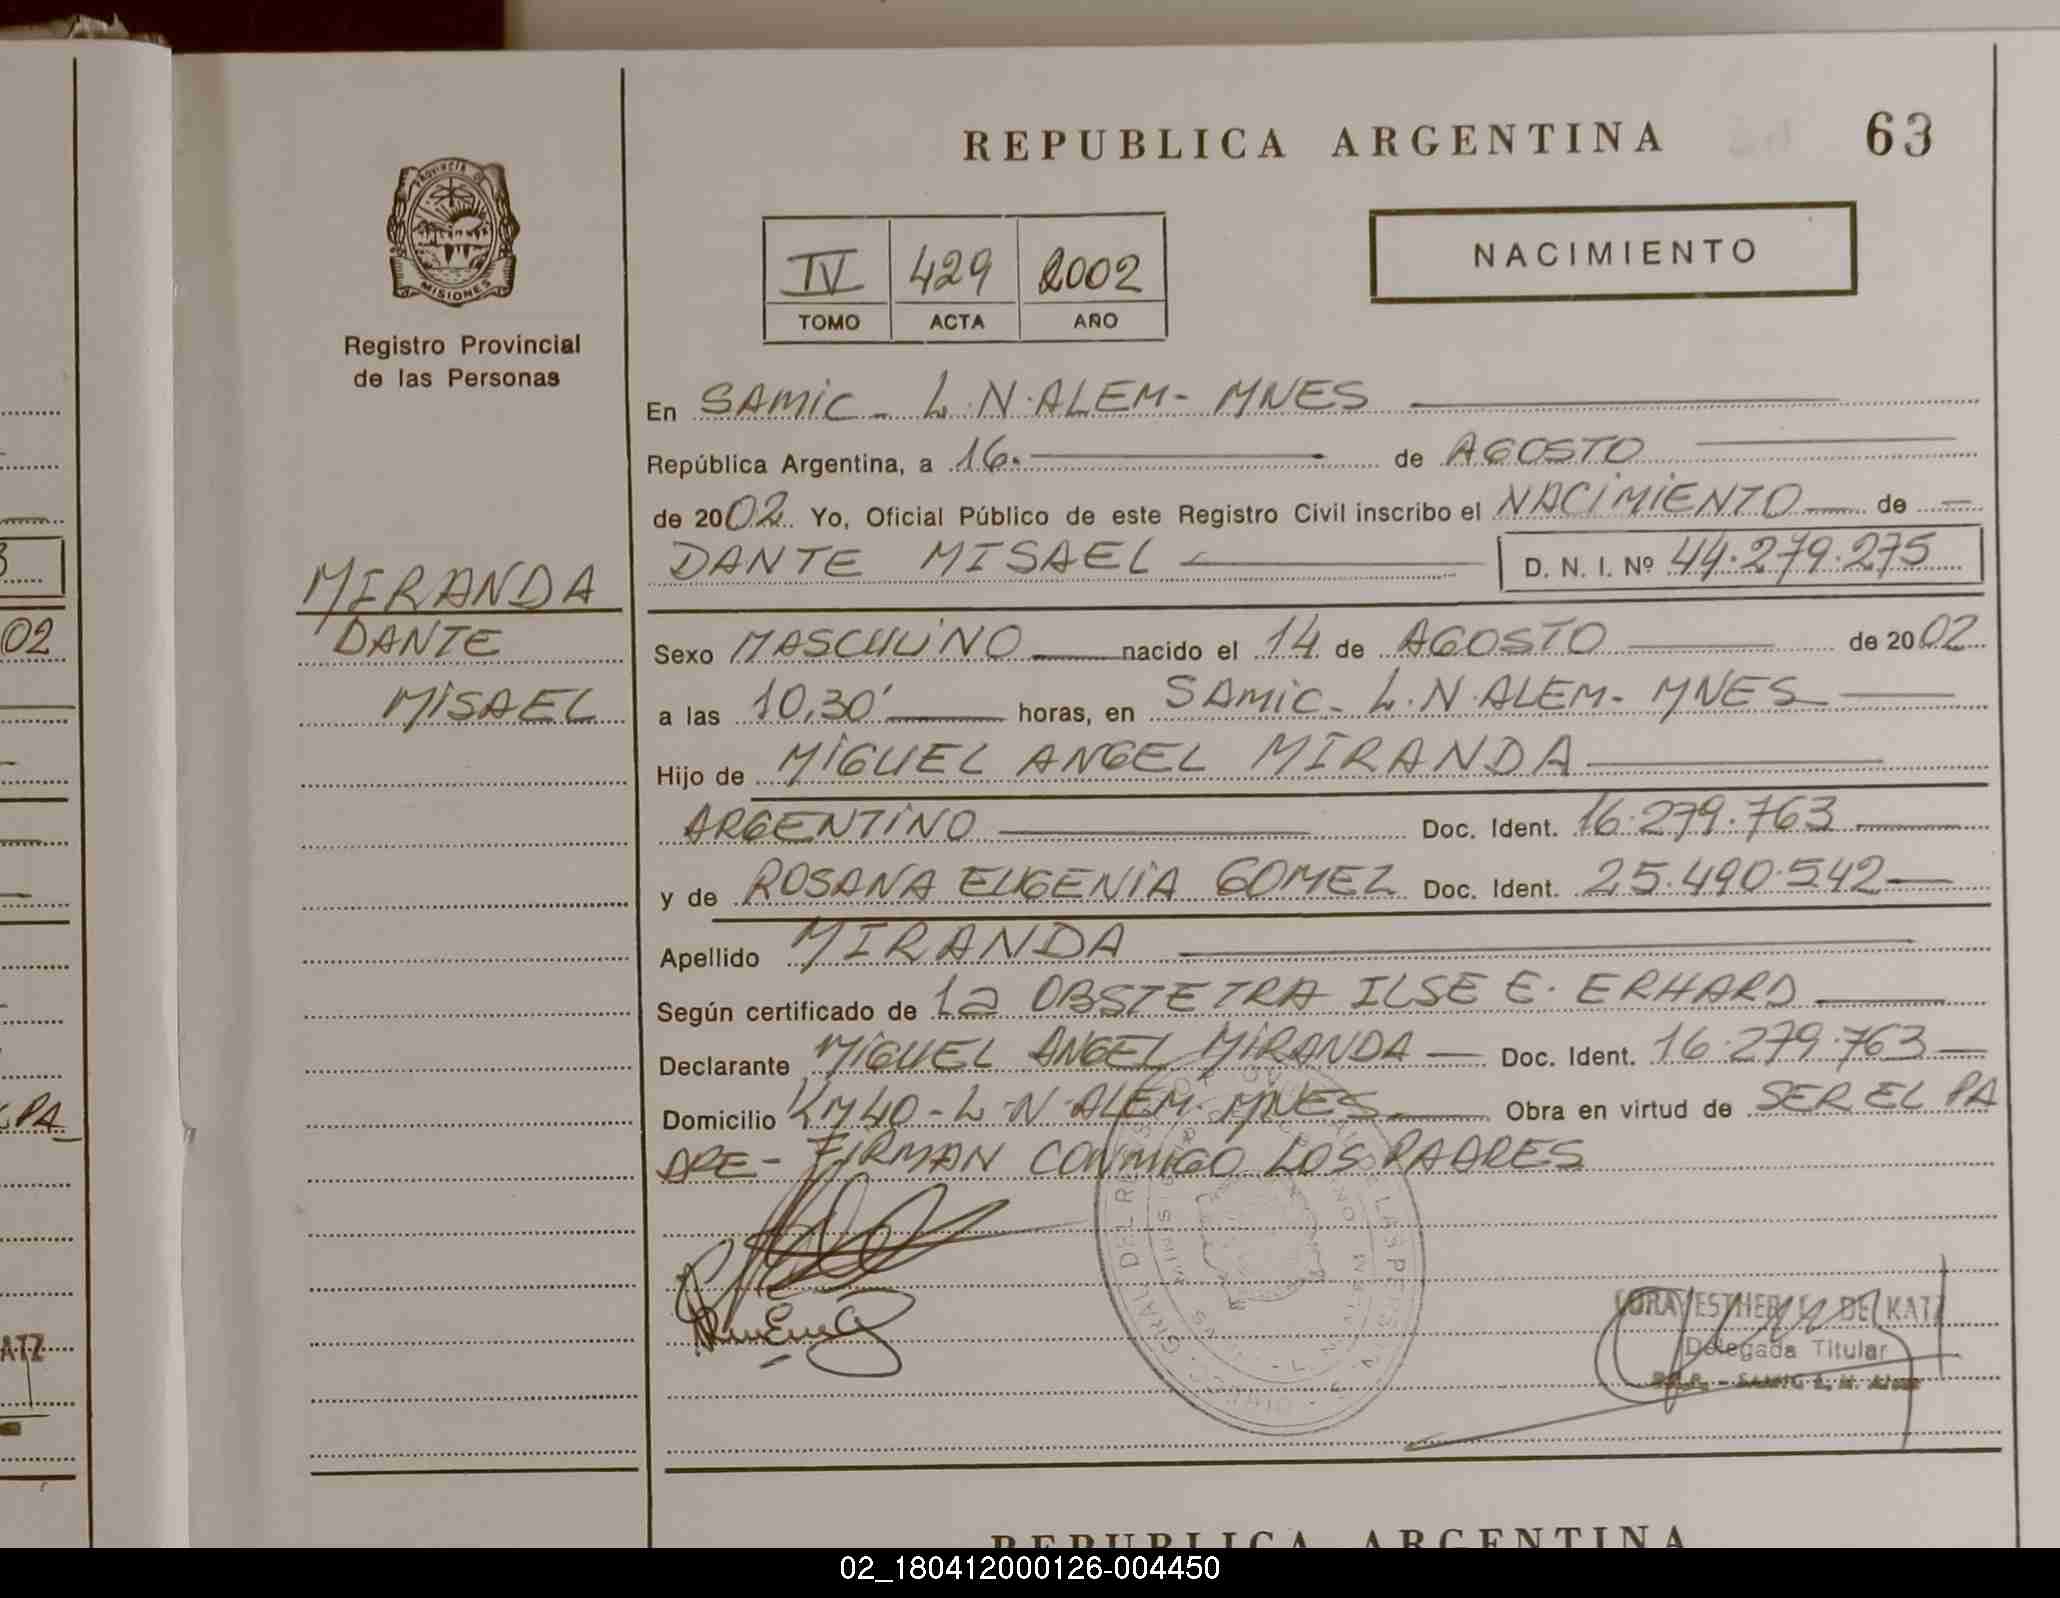 REPUBLICA ARGENTINA
63
PROVINCIA DE
MISIONES
Registro Provincial
de las Personas
IV 429 2002
TOMO ACTA AÑO
NACIMIENTO
En SAMIC - L.N.ALEM- MNES
República Argentina, a 16. de AGOSTO
de 2002. Yo, Oficial Público de este Registro Civil inscribo el NACIMIENTO de
DANTE MISAEL D. N. I. Nº 44.279.275
MIRANDA
DANTE
MISAEL
Sexo MASCULINO nacido el 14 de AGOSTO de 2002
a las 10,30' horas, en SAMIC - L.N.ALEM- MNES
Hijo de MIGUEL ANGEL MIRANDA
ARGENTINO Doc. Ident. 16.279.763
y de ROSANA EUGENIA GOMEZ Doc. Ident. 25.490.542
Apellido MIRANDA
Según certificado de la OBSTETRA ILSE E. ERHARD
Declarante MIGUEL ANGEL MIRANDA Doc. Ident. 16.279.763
Domicilio KM40 - L-N-ALEM- MNES Obra en virtud de SER EL PA
DRE - FIRMAN CONMIGO LOS PADRES
ESTHER DE KATZ
Delegada Titular
02
PA
ATZ
REPUBLICA ARGENTINA
02_180412000126-004450